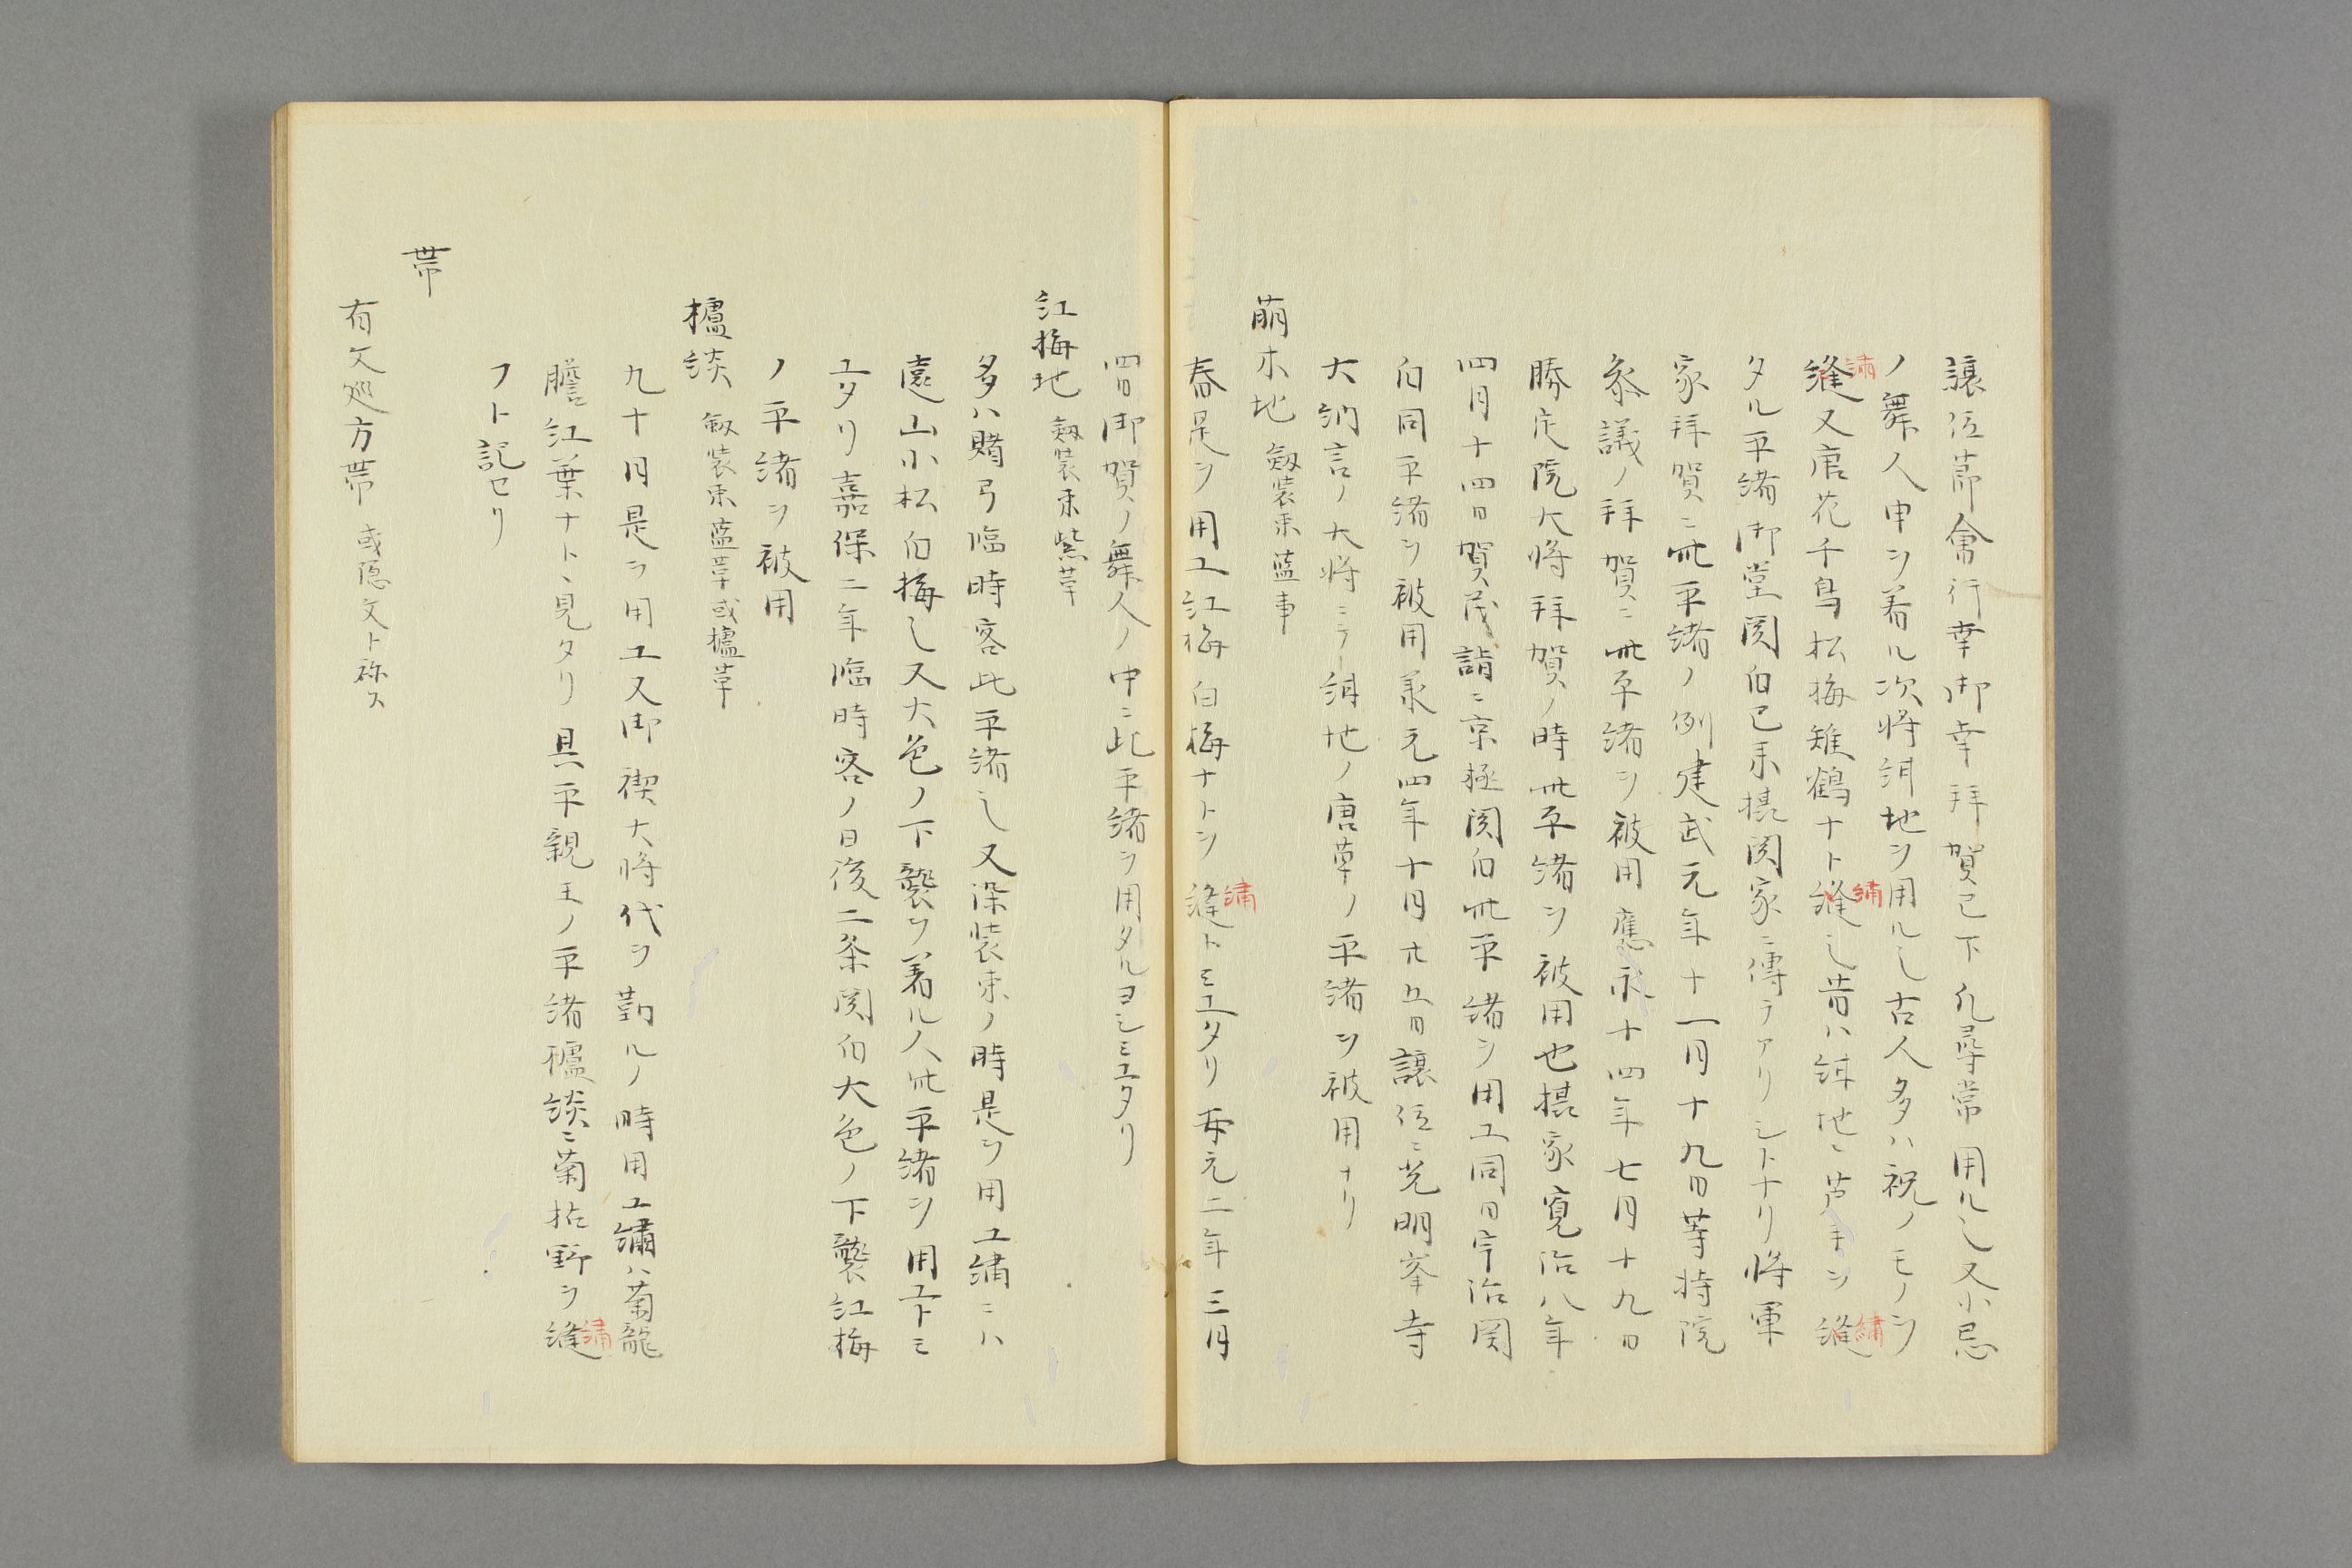 譲位節會行幸御幸拜賀已下凡尋常用ル〆又小忌
ノ舞人申ヲ着ル次將紺地ヲ用ル〆古人多ハ祝ノモノヲ
繍
縫又唐花千鳥松梅雉鶴ナト縫〆昔ハ紺地ニ芦手ヲ縫
繍
繍
タル平緒御堂関白已來摂関家ニ傳テアリシトナリ將軍
家拜賀ニ此平緒ノ例建武元年十一月十九日等持院
叅議ノ拜賀ニ此平緒ヲ被用應永十四年七月十九日
勝定院大將拜賀ノ時此平緒ヲ被用也摂家寛治八年
四月十四日賀茂詣ニ京極関白此平緒ヲ用エ同日宇治関
白同平緒ヲ被用承元四年十月廿五日譲位ニ光明峯寺
大納言ノ大將ニテ紺地ノ唐草ノ平緒ヲ被用ナリ
萠木地 劔装束藍事
春是ヲ用エ紅梅白梅ナトヲ縫トミエタリ 安元二年三月
繍
四日御賀ノ舞人ノ中ニ此平緒ヲ用タルヨシミエタリ
紅梅地 劔装束紫革
多ハ賭弓臨時客此平緒〆又染装束ノ時是ヲ用エ繍ニハ
遠山小松白梅〆又大色ノ下襲ヲ着ル人此平緒ヲ用エトミ
エタリ嘉保二年臨時客ノ日後二条関白大色ノ下襲紅梅
ノ平緒ヲ被用
櫨談 劔装束藍革或櫨革
九十月是ヲ用エ又御禊大將代ヲ勤ルノ時用エ繍ハ菊龍
膽紅葉ナト、見タリ 具平親王ノ平緒櫨談ニ菊枯野ヲ縫
繍
フト記セリ
帯
有文巡方帯 或隠文ト称ス